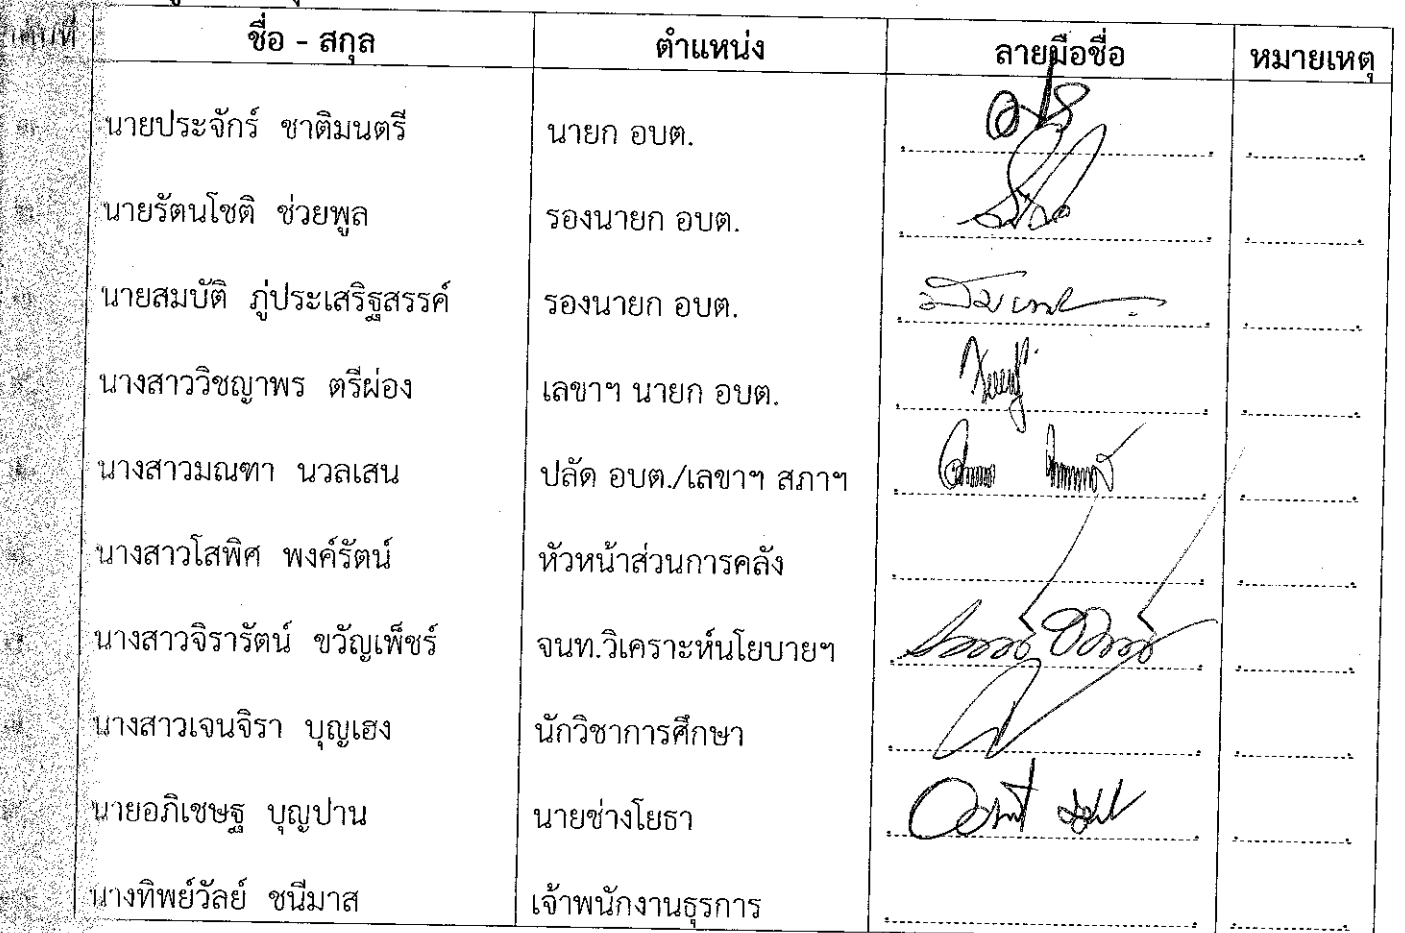 ชื่อ - สกุล ตำแหน่ง ลายมือชื่อ หมายเหตุ
นายประจักร์ ชาติมนตรี นายก อบต.
นายรัตนโชติ ช่วยพูล รองนายก อบต.
นายสมบัติ ภู่ประเสริฐสรรค์ รองนายก อบต.
นางสาววิชญาพร ตรีผ่อง เลขาฯ นายก อบต.
นางสาวมณฑา นวลเสน ปลัด อบต./เลขาฯ สภาฯ
นางสาวโสพิศ พงค์รัตน์ หัวหน้าส่วนการคลัง
นางสาวจิรารัตน์ ขวัญเพ็ชร์ จนท.วิเคราะห์นโยบายฯ
นางสาวเจนจิรา บุญเฮง นักวิชาการศึกษา
นายอภิเชษฐ บุญปาน นายช่างโยธา
นางทิพย์วัลย์ ชนีมาส เจ้าพนักงานธุรการ